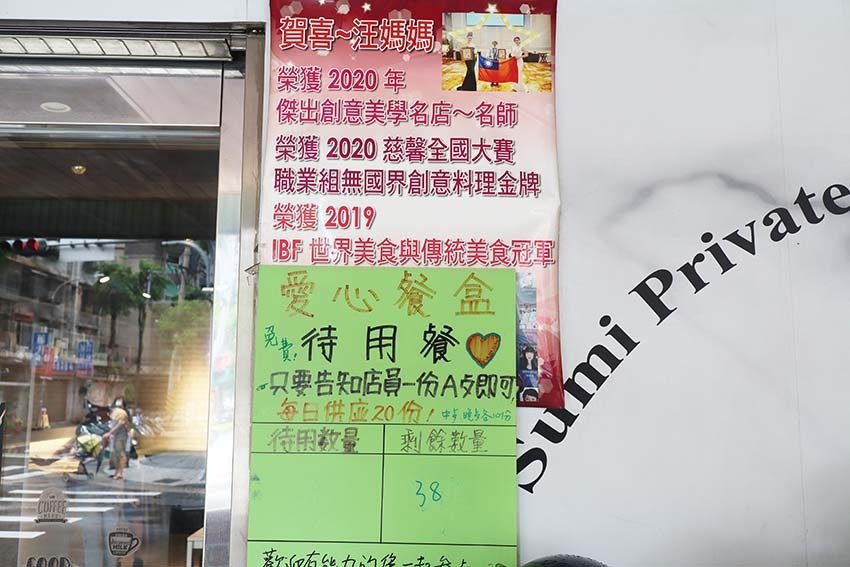 賀喜~汪媽媽
榮獲 2020 年
傑出創意美學名店～名師
榮獲 2020 慈馨全國大賽
職業組無國界創意料理金牌
榮獲 2019
IBF 世界美食與傳統美食冠軍
愛心餐盒
免費! 待用餐
只要告知店員一份A夕即可
每日供应20份! 中午 晚夕各10份
待用数量 剩餘数量
38
歡迎有能力的您一起參与
Sumi Private
COFFEE
MILK